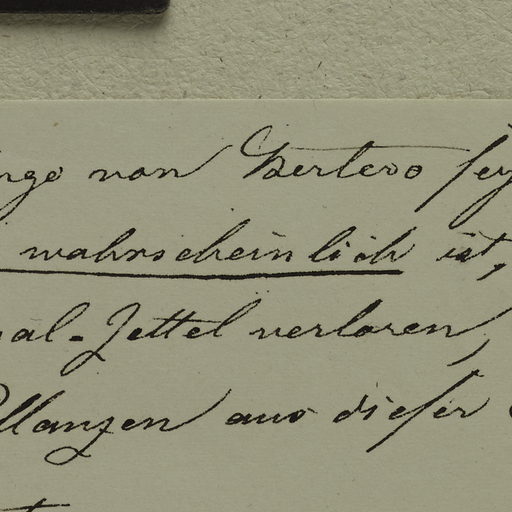 von Bertero sey
wahrscheinlich ist,
al-Zettel verloren,
Pflanzen aus dieser